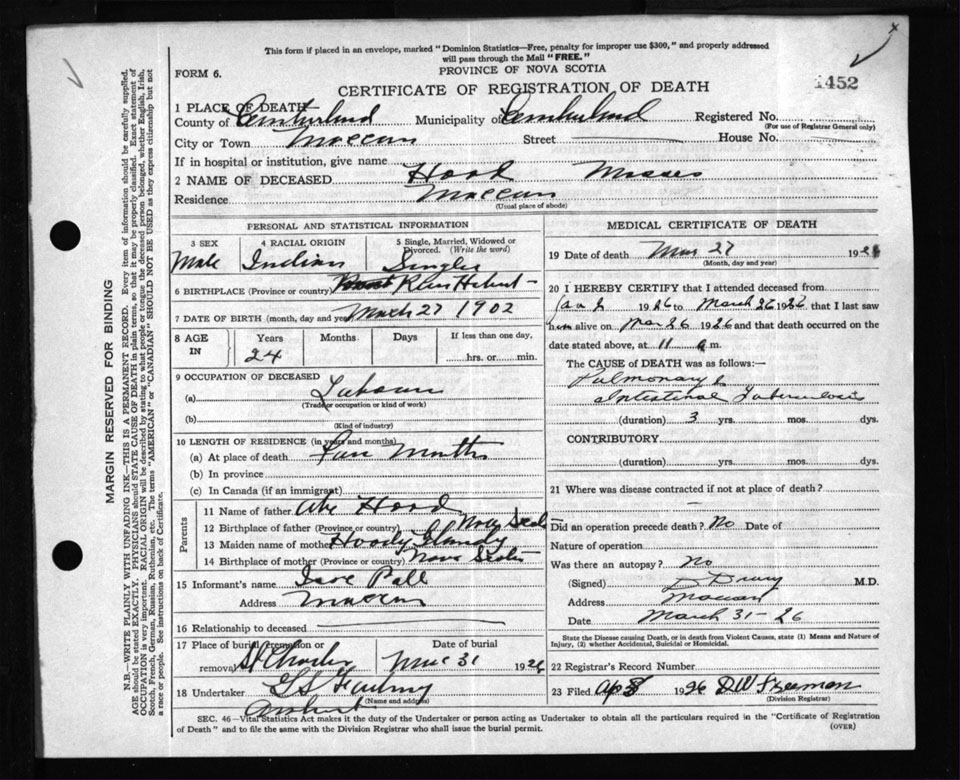 This form if placed in an envelope, marked "Dominion Statistics—Free, penalty for improper use $300," and properly addressed
will pass through the Mail "FREE."
PROVINCE OF NOVA SCOTIA
FORM 6.
CERTIFICATE OF REGISTRATION OF DEATH
1452
1 PLACE OF DEATH
County of Cumberland Municipality of Cumberland Registered No.
(For use of Registrar General only)
City or Town Maccan Street House No.
If in hospital or institution, give name
2 NAME OF DECEASED Hood Mosses
Residence Maccan
(Usual place of abode)
MARGIN RESERVED FOR BINDING
N.B.—WRITE PLAINLY WITH UNFADING INK—THIS IS A PERMANENT RECORD. Every item of information should be carefully supplied.
AGE should be stated EXACTLY. PHYSICIANS should STATE CAUSE OF DEATH in plain terms, so that it may be properly classified. Exact statement of
OCCUPATION is very important. RACIAL ORIGIN will be described by stating to what people or tongue the deceased person belonged, whether English, Irish,
Scotch, French, German, Russian, Ruthenian, etc. The terms "AMERICAN" or "CANADIAN" SHOULD NOT BE USED as they express citizenship but not
a race or people. See instructions on back of Certificate.
PERSONAL AND STATISTICAL INFORMATION
3 SEX 4 RACIAL ORIGIN 5 Single, Married, Widowed or
Divorced. (Write the word)
Male Indian Single
6 BIRTHPLACE (Province or country) River Hebert
7 DATE OF BIRTH (month, day and year) March 27 1902
8 AGE IN Years Months Days If less than one day,
24 hrs. or min.
9 OCCUPATION OF DECEASED
(a) Labourer
(Trade, occupation or kind of work)
(b)
(Kind of industry)
10 LENGTH OF RESIDENCE (in years and months)
(a) At place of death Four Months
(b) In province
(c) In Canada (if an immigrant)
Parents
11 Name of father Abe Hood
12 Birthplace of father (Province or country) Nova Scotia
13 Maiden name of mother
14 Birthplace of mother (Province or country) Nova Scotia
15 Informant's name Pall
Address Maccan
16 Relationship to deceased
17 Place of burial, cremation or Date of burial
removal St Charles Mar 31 1926
18 Undertaker
(Name and address)
Amherst
MEDICAL CERTIFICATE OF DEATH
19 Date of death Mar 27 1926
(Month, day and year)
20 I HEREBY CERTIFY that I attended deceased from
Jan 2 1926 to March 26 1926 that I last saw
him alive on Mar 26 1926 and that death occurred on
date stated above, at 11 a m.
The CAUSE OF DEATH was as follows:—
Pulmonary &
Intestinal Tuberculosis
(duration) 3 yrs. mos. dys.
CONTRIBUTORY
(duration) yrs. mos. dys.
21 Where was disease contracted if not at place of death?
Did an operation precede death? No Date of
Nature of operation
Was there an autopsy? No
(Signed) D Drury M.D.
Address Maccan
Date March 31-26
State the Disease causing Death, or in death from Violent Causes, state (1) Means and Nature of
Injury, (2) whether Accidental, Suicidal or Homicidal.
22 Registrar's Record Number
23 Filed Ap 8 1926 DW Freeman
(Division Registrar)
SEC. 46—Vital Statistics Act makes it the duty of the Undertaker or person acting as Undertaker to obtain all the particulars required in the "Certificate of Registration
of Death" and to file the same with the Division Registrar who shall issue the burial permit.
(OVER)